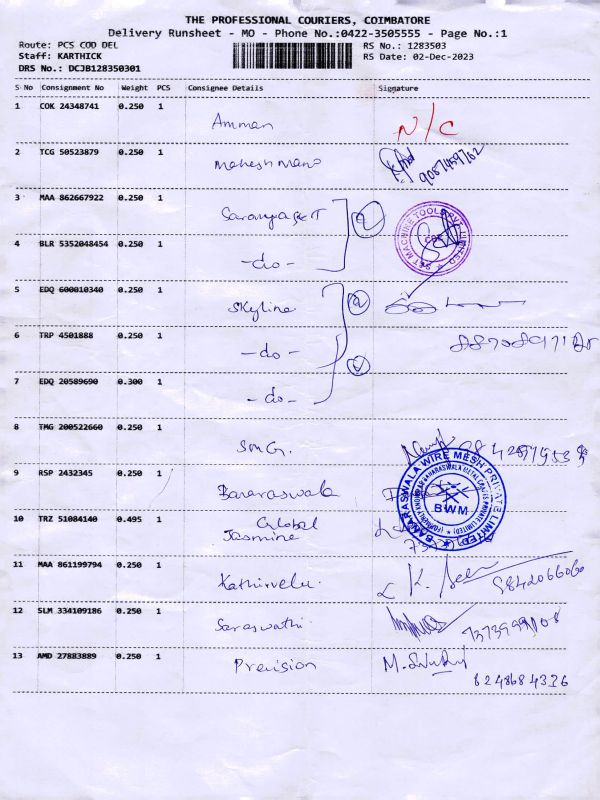 THE PROFESSIONAL COURIERS, COIMBATORE
Delivery Runsheet - MO - Phone No.:0422-3505555 - Page No.:1
Route: PCS COD DEL
RS No.: 1283503
Staff: KARTHICK
RS Date: 02-Dec-2023
DRS No.: DCJB128350301
S No Consignment No Weight PCS Consignee Details Signature
1 COK 24348741 0.250 1
Amman N/C
2 TCG 50523879 0.250 1
3 MAA 862667922 0.250 1
4 BLR 5352048454 0.250 1
-do-
S&T MACHINE TOOLS PVT LIMITED
CBE
5 EDQ 600010340 0.250 1
Skyline
6 TRP 4501888 0.250 1
-do-
7 EDQ 20589690 0.300 1
-do-
8 TMG 200522660 0.250 1
9 RSP 2432345 0.250 1
Banaraswala
BANARASWALA WIRE MESH PRIVATE LIMITED
BWM
10 TRZ 51084140 0.495 1
Global
Jasmine
11 MAA 861199794 0.250 1
Kathirvelu.
9842066060
12 SLM 334109186 0.250 1
Saraswathi.
13 AMD 27883889 0.250 1
Precision